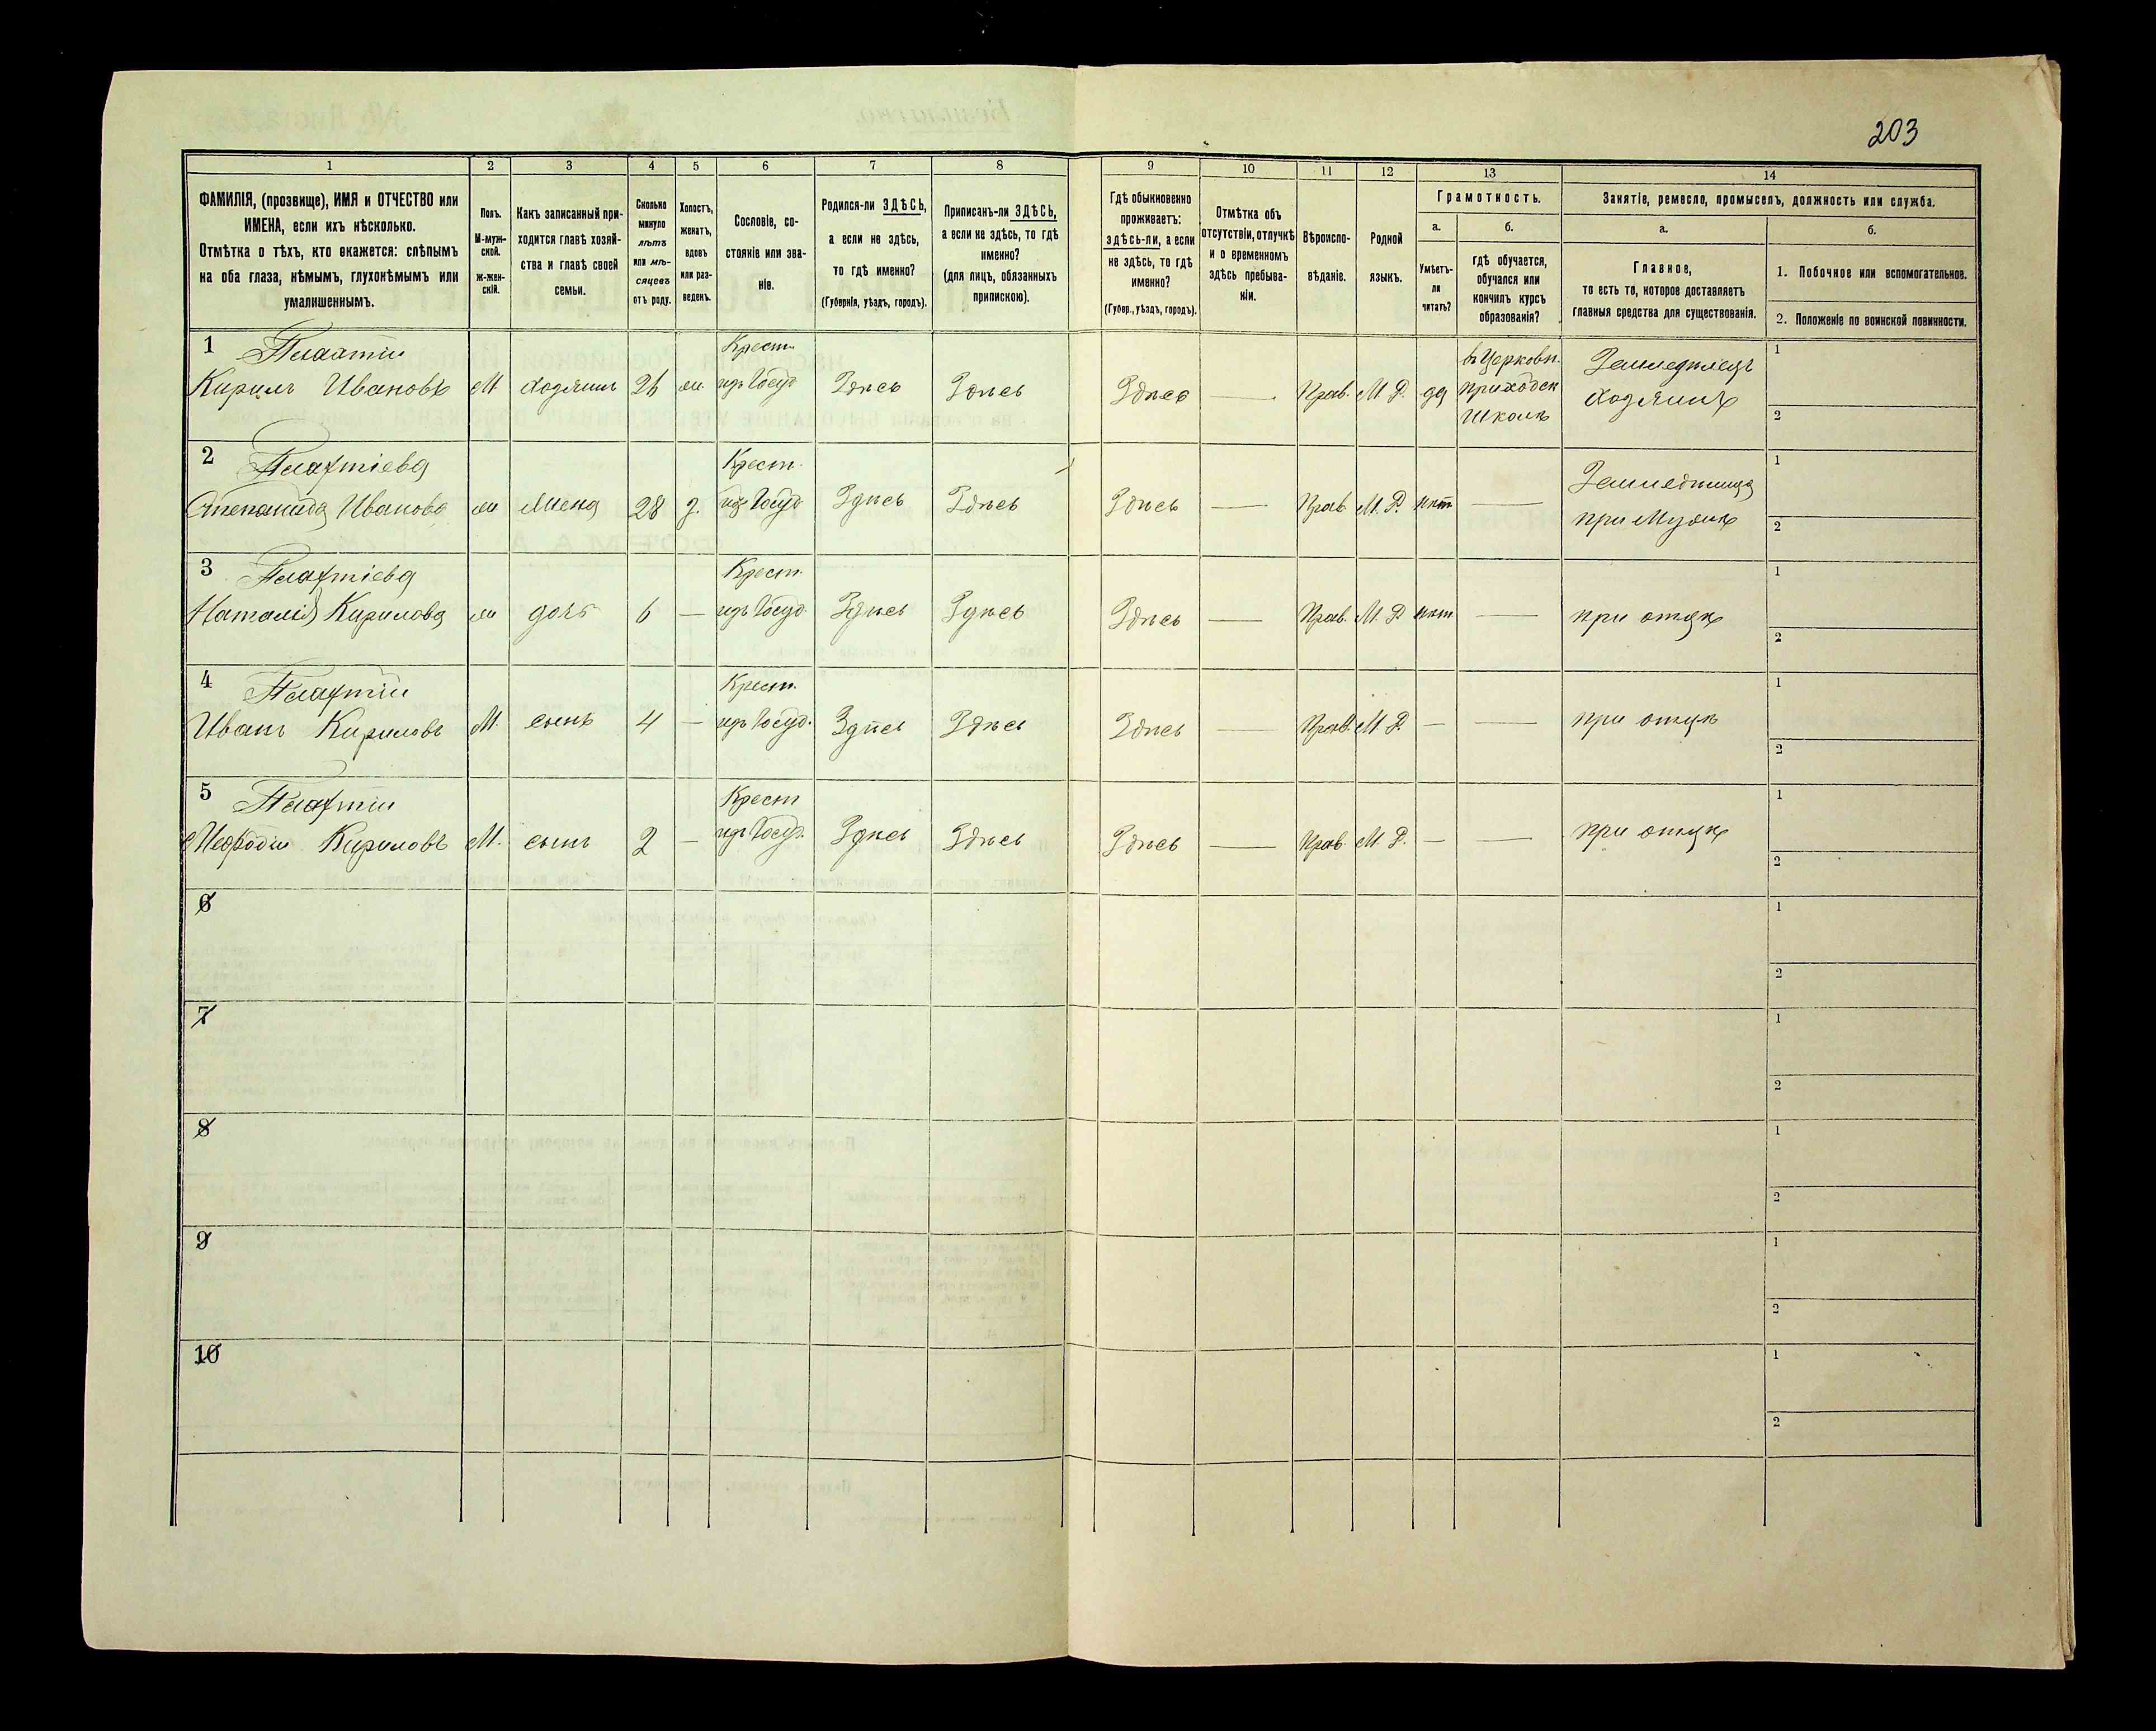 203
1
2
3
4
5
6
7
8
9
10
11
12
13
14
ФАМИЛІЯ, (прозвище), ИМЯ и ОТЧЕСТВО или
ИМЕНА, если ихъ нѣсколько.
Отмѣтка о тѣхъ, кто окажется: слѣпымъ
на оба глаза, нѣмымъ, глухонѣмымъ или
умалишеннымъ.
Полъ.
М-муж-
ской.
ж-жен-
скій.
Какъ записанный при-
ходится главѣ хозяй-
ства и главѣ своей
семьи.
Сколько
минуло
лѣтъ
или мѣ-
сяцевъ
отъ роду.
Холостъ,
женатъ,
вдовъ
или раз-
веденъ.
Сословіе, со-
стояніе или зва-
ніе.
Родился-ли ЗДѢСЬ,
а если не здѣсь,
то гдѣ именно?
(Губернія, уѣздъ, городъ).
Приписанъ-ли ЗДѢСЬ,
а если не здѣсь, то гдѣ
именно?
(для лицъ, обязанныхъ
припискою).
Гдѣ обыкновенно
проживаетъ:
здѣсь-ли, а если
не здѣсь, то гдѣ
именно?
(Губер., уѣздъ, городъ).
Отмѣтка объ
отсутствіи, отлучкѣ
и о временномъ
здѣсь пребыва-
ніи.
Вѣроиспо-
вѣданіе.
Родной
языкъ.
Грамотность.
а.
Умѣетъ-
ли
читать?
б.
гдѣ обучается,
обучался или
кончилъ курсъ
образованія?
Занятіе, ремесло, промыселъ, должность или служба.
а.
Главное,
то есть то, которое доставляетъ
главныя средства для существованія.
б.
1. Побочное или вспомогательное.
2. Положеніе по воинской повинности.
1 Крест. въ Церковн. Земледѣлецъ 1
Кирилъ Ивановъ М хозяинъ 26 ж. изъ Госуд Здѣсь Здѣсь Здѣсь — Прав. М. Р. да приходск Хозяинъ
школѣ 2
2 Крест. 1
Ивановa ж жена 28 з. изъ Госуд Здѣсь Здѣсь Здѣсь — Прав М. Р. нѣт — при Мужѣ 2
3 Крест. 1
Наталія Кирилова ж дочь 6 — изъ Госуд Здѣсь Здѣсь Здѣсь — Прав. М. Р. нѣт — при отцѣ 2
4 Крест. 1
Иванъ Кириловъ М. сынъ 4 — изъ Госуд. Здѣсь Здѣсь Здѣсь — Прав. М. Р. — — при отцѣ 2
5 Крест 1
Мефодій Кириловъ М. сынъ 2 — изъ Госуд. Здѣсь Здѣсь Здѣсь — Прав. М. Р. — — при отцѣ 2
6 1
2
7 1
2
8 1
2
9 1
2
10 1
2